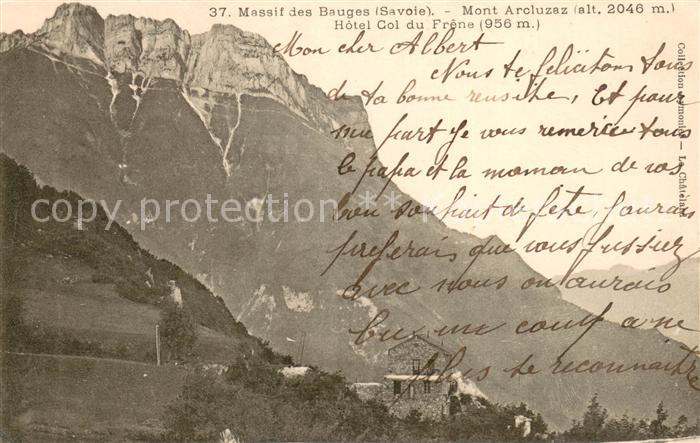 37. Massif des Bauges (Savoie). - Mont Arcluzaz (alt. 2046 m.)
Hôtel Col du Frêne (956 m.)
Mon cher Albert
Nous te felicitons tous
de ta bonne reusite, Et pour
ma part Je vous remercie tous
le papa et la maman de vos
bon souhait de fete, Jaurais
preferais que vous fussiez
avec nous on aurais
bu un coup a ne
plus se reconnaitre
Collection - La Châtelard
copy protection